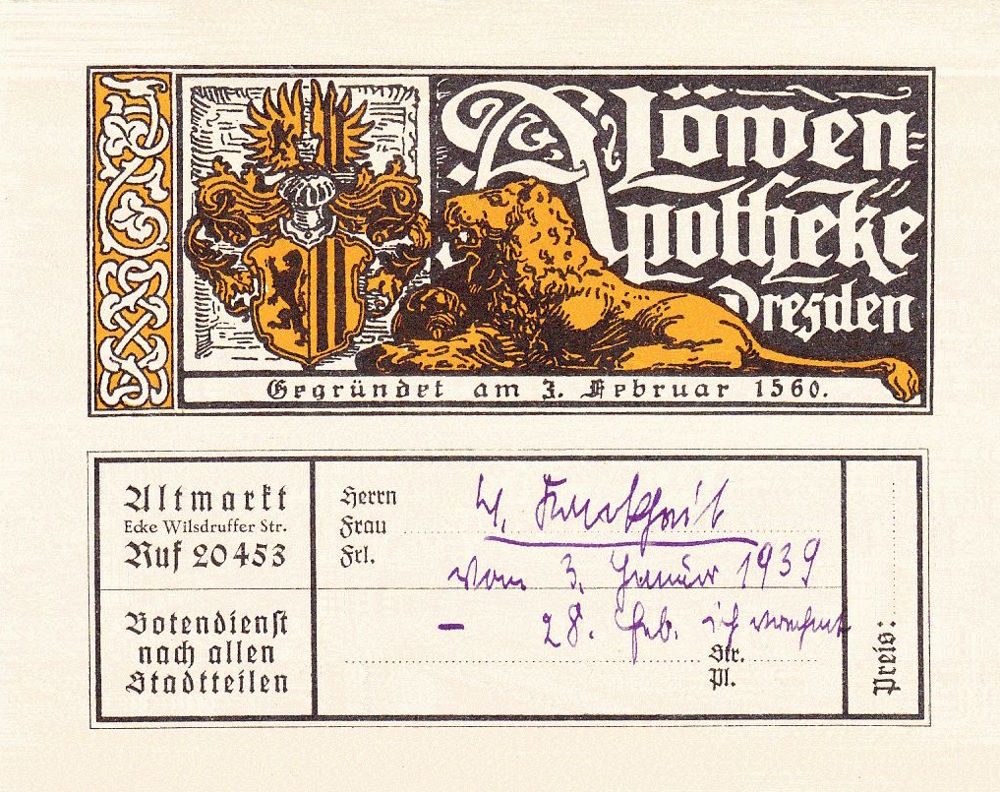 Löwen-
Apotheke
Dresden
Gegründet am 3. Februar 1560.
Altmarkt
Ecke Wilsdruffer Str.
Ruf 20453
Botendienst
nach allen
Stadtteilen
Herrn
Frau
Frl.
vom 3. Januar 1939
- 28. Feb. ich
Str.
Pl.
Preis: